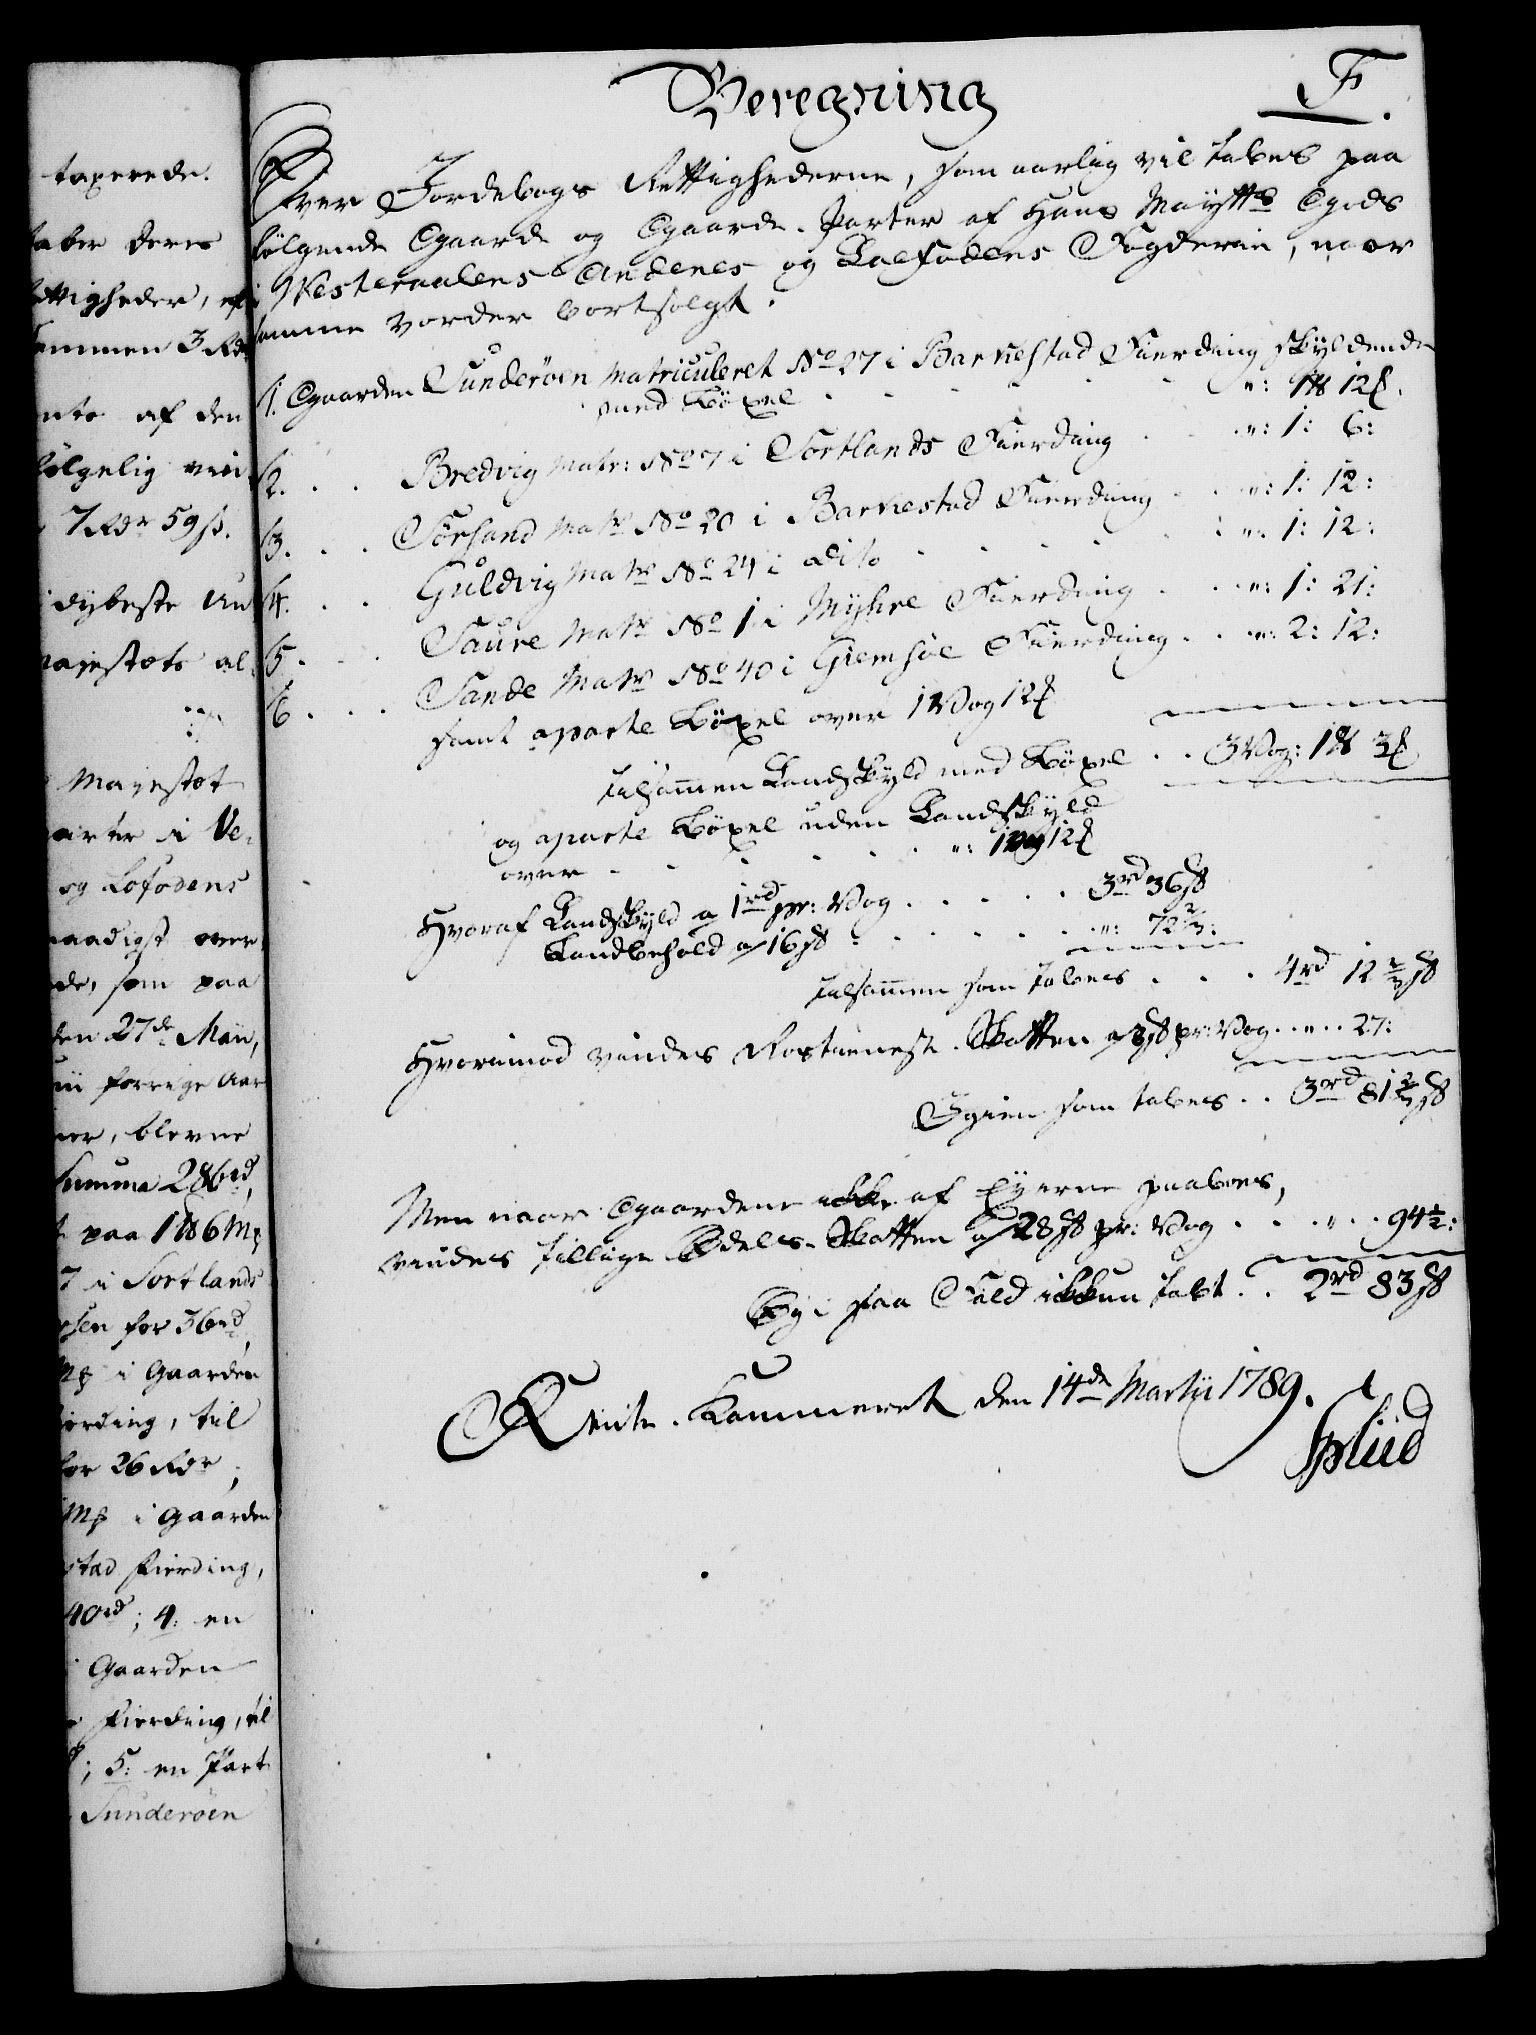 taxerede.
taber deres
ettigheder, ef
sammen 3 Rd
nto af den
følgelig min
7 Rdr 59 ß.
i dybeste Un
majestæts al
Majestæt
parter i Ve-
og Lofodens
naadigst over
de, som paa
den 27de Maii,
forrige Aar
ner, blevne
Summa 286rd,
t paa 1 ℔ 6 Mk
7 i Sortlands
sen for 36rd,
Mk i Gaarden
ierding, til
for 26 Rdr;
Mk i Gaarden
stad Fierding,
40rd; 4: en
i Gaarden
Fierding, til
; 5: en Part
Sunderöen
Beregning
F.
Over Jordebogs Rettighederne, som aarlig vil tabes paa
følgende Gaarde og Gaarde-Parter af Hans Maytts Gods
i Westeraalens Andenes og Lofodens Fogderie, naar
samme vorder bortsolgt.
1. Gaarden Sunderöen Matriculeret No 27 i Barkestad Fierding skyldende
med Böxel . . . . ": 1 ℔ 12 ℳ.
2. . . Bredvig Matr: No 7 i Sortlands Fierding . . ": 1: 6:
3. . . Sörsand Matr No 20 i Barkestad Fierding . . ": 1: 12:
4. . . Guldvig Matr No 24 i dito . . . . ": 1: 12:
5. . . Saure Matr No 1 i Myhre Fierding . . ": 1: 21:
6. . . Sande Matr No 40 i Giemsöe Fierding . . ": 2: 12:
samt aparte Böxel over 1 Vog 12 ℳ
Tilsammen Landskyld med Böxel . . 3 Vog: 1 ℔ 3 ℳ
og aparte Böxel uden Landskyld
over . . . . . ": 1 Vog 12 ℳ
Hvoraf Landskyld a 1rd pr: Vog . . . . . 3rd 36 ß
Landbohold a 16 ß . . . . . ": 72 2/3:
Tilsammen som tabes . . . 4rd 12 2/3 ß
Hvorimod vindes Rostieneste-Skatten a 8 ß pr: Vog . . " . . 27:
Igien som tabes . . 3rd 81 2/3 ß
Men naar Gaardene ikke af Eyerne paaboes,
vindes tillige Odels-Skatten a 28 ß pr: Vog . . . " . . 94 1/2:
Og i saa Fald ikkun tabt . . 2rd 83 ß
Rente-Kammeret den 14de Martii 1789.